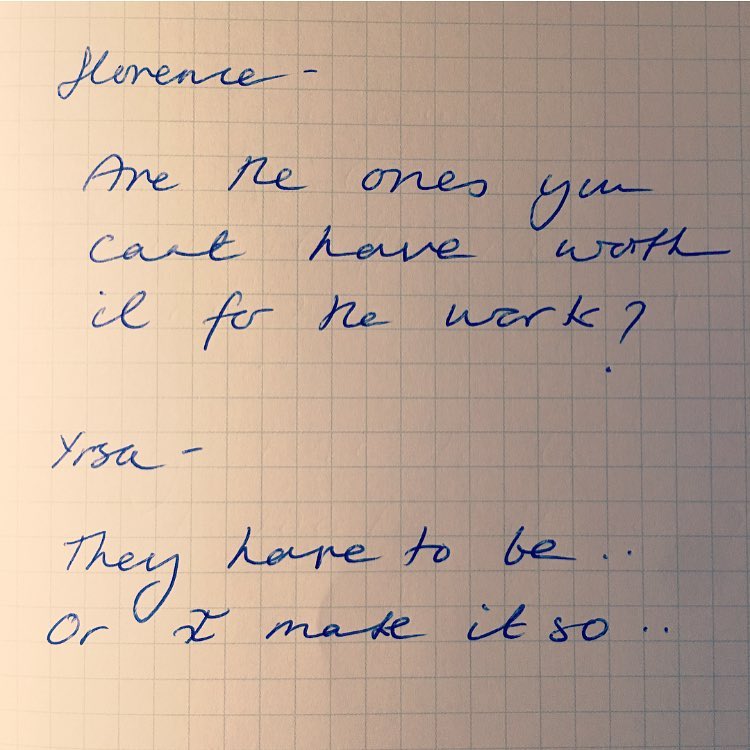 Florence -
Are the ones you
cant have worth
it for the work?
Yrsa -
They have to be ..
Or I make it so ..